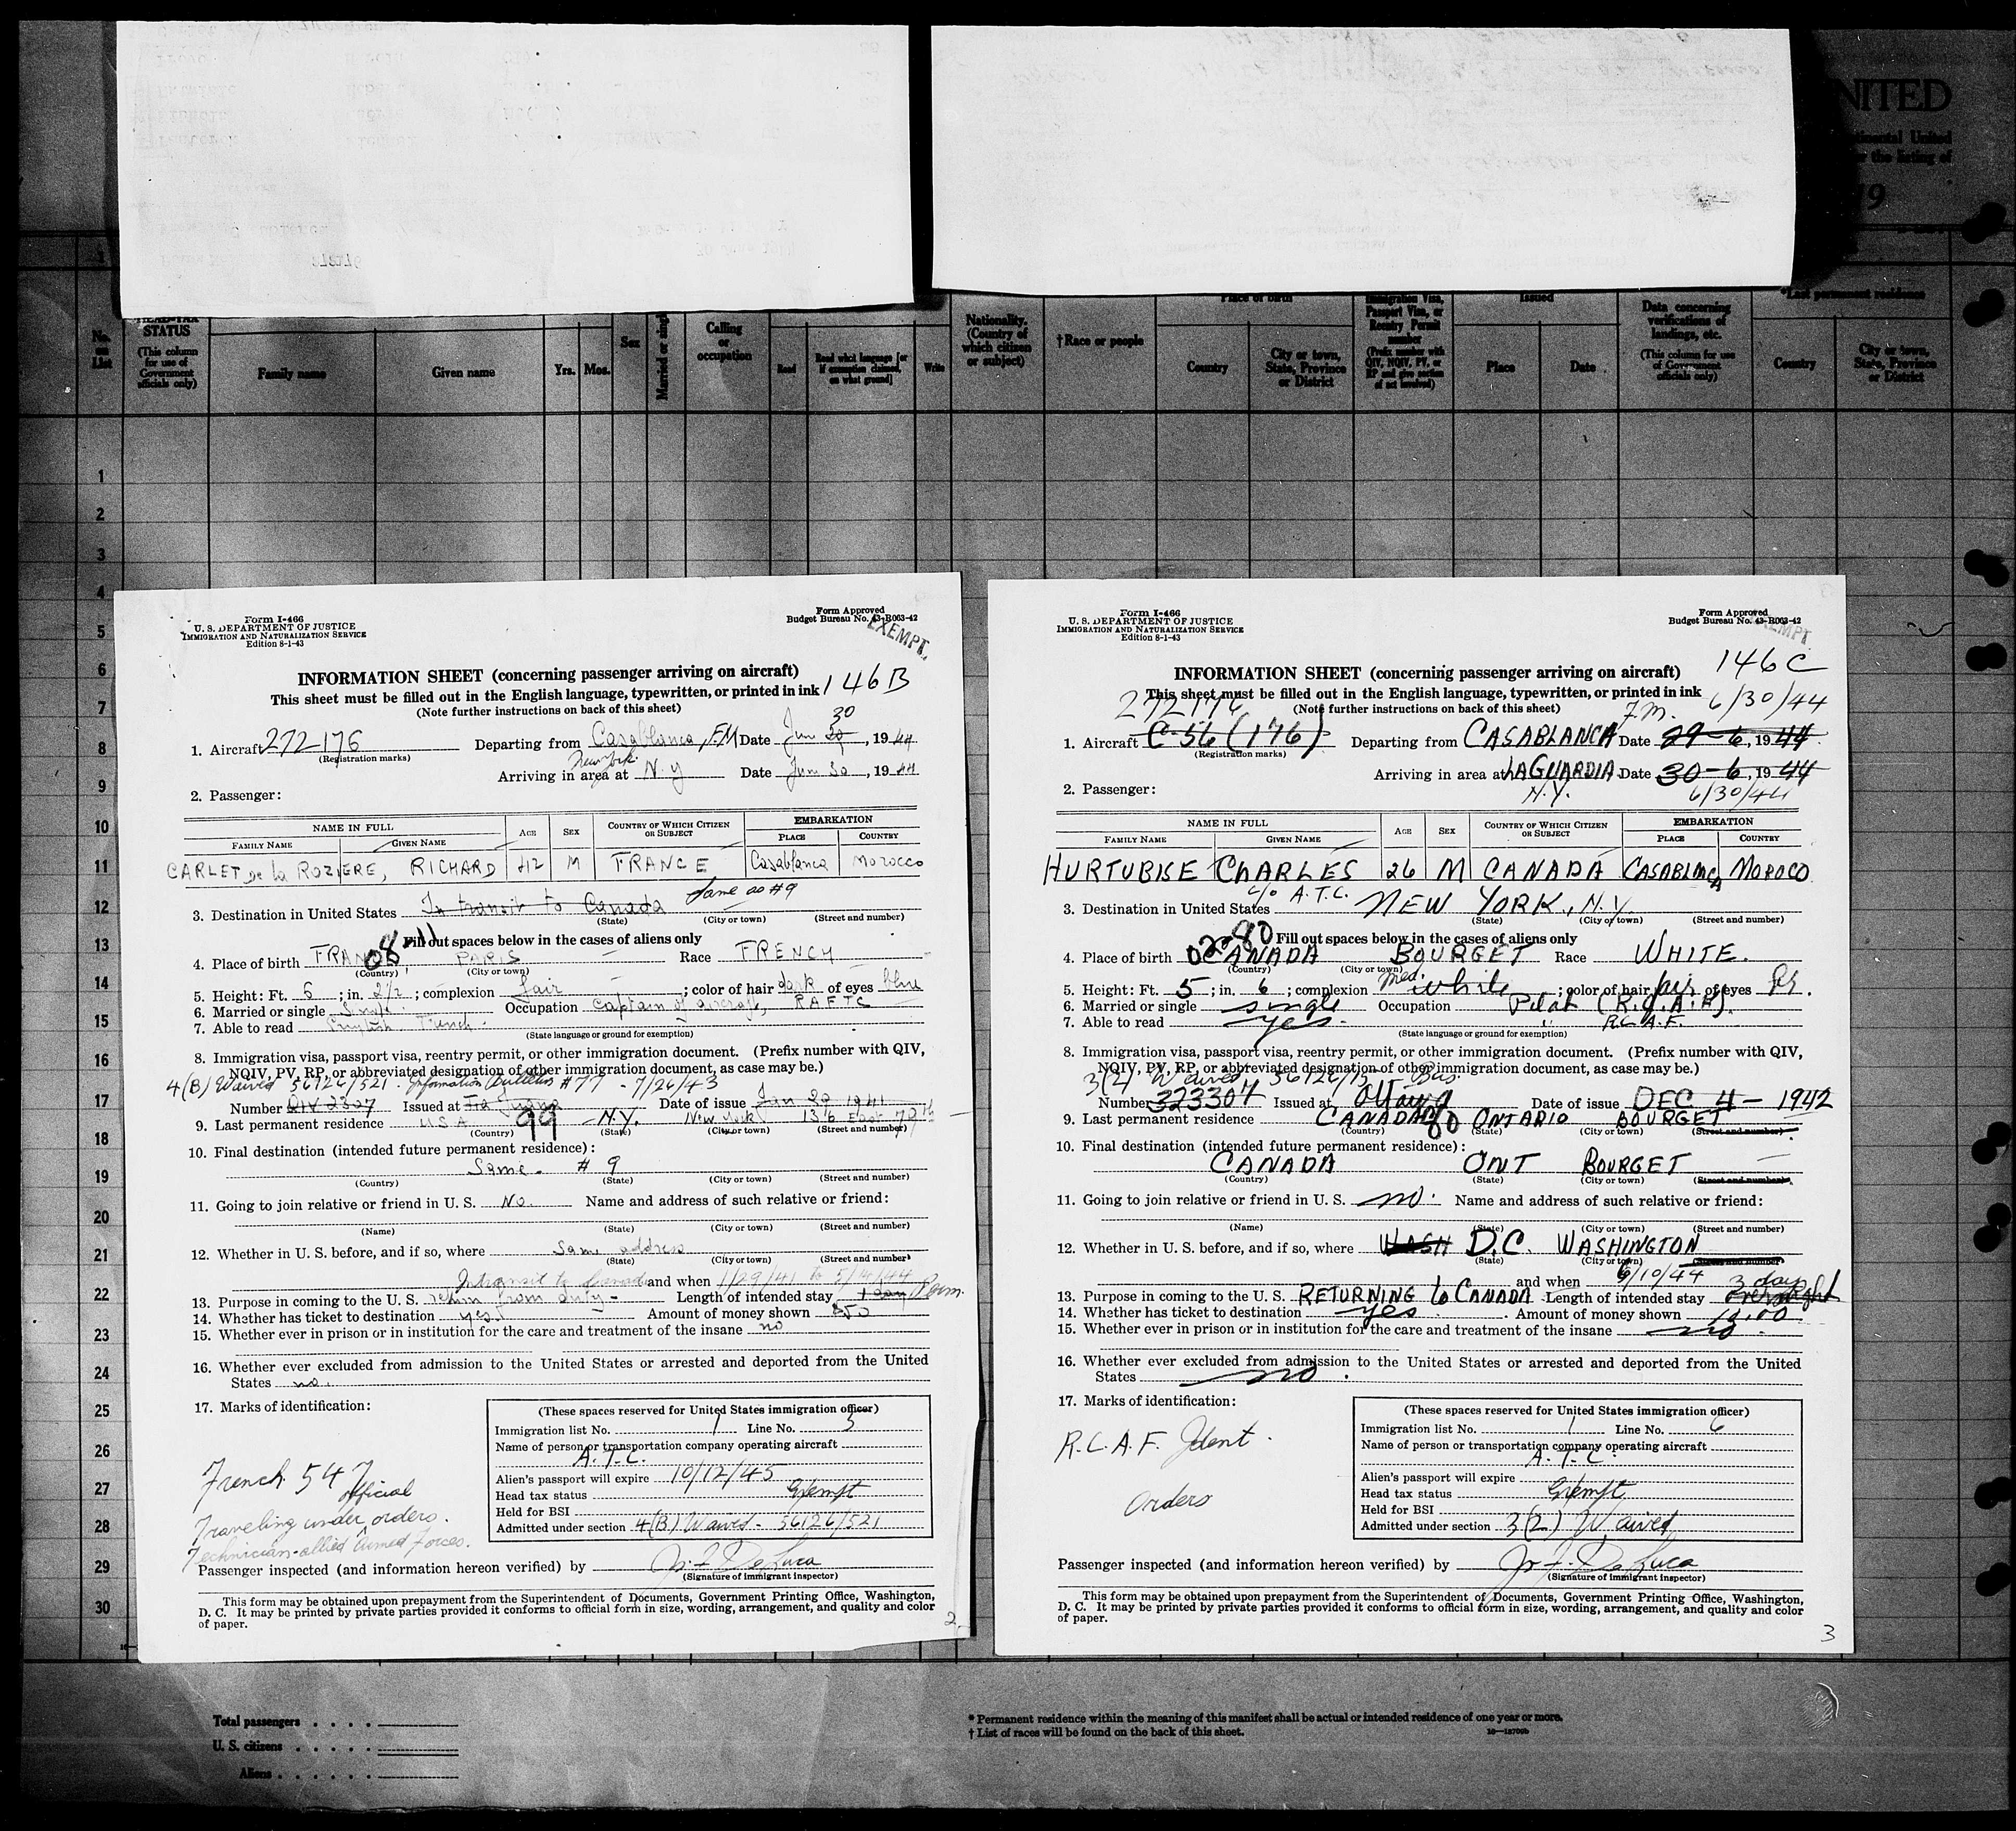 NITED
ntinental United
r the listing of
19
No. on List
HEAD-TAX STATUS
(This column for use of Government officials only)
Family name
Given name
Yrs.
Mos.
Sex
Married or single
Calling or occupation
Read
Read what language [or if exemption claimed, on what ground]
Write
Nationality. (Country of which citizen or subject)
†Race or people
Place of birth
Country
City or town, State, Province or District
Immigration Visa, Passport Visa, or Reentry Permit number
(Prefix number with QIV, NQIV, PV, or RP and give section of act involved)
Issued
Place
Date
Data concerning verifications of landings, etc.
(This column for use of Government officials only)
*Last permanent residence
Country
City or town, State, Province or District
1
2
3
4
5
6
7
8
9
10
11
12
13
14
15
16
17
18
19
20
21
22
23
24
25
26
27
28
29
30
Form I-466
U. S. DEPARTMENT OF JUSTICE
IMMIGRATION AND NATURALIZATION SERVICE
Edition 8-1-43
Form Approved
Budget Bureau No. 43-R063-42
EXEMPT.
INFORMATION SHEET (concerning passenger arriving on aircraft)
146B
This sheet must be filled out in the English language, typewritten, or printed in ink
(Note further instructions on back of this sheet)
30
1. Aircraft 272176 Departing from Casablanca, FM Date Jun 30, 1944
(Registration marks)
New York
Arriving in area at N.Y Date Jun 30, 1944
2. Passenger:
NAME IN FULL AGE SEX COUNTRY OF WHICH CITIZEN OR SUBJECT EMBARKATION
FAMILY NAME GIVEN NAME PLACE COUNTRY
CARLET de la ROZIERE, RICHARD 42 M FRANCE Casablanca Morocco
Same as #9
3. Destination in United States In transit to Canada
(State) (City or town) (Street and number)
08-11 Fill out spaces below in the cases of aliens only
4. Place of birth FRANCE PARIS Race FRENCH
(Country) (City or town)
5. Height: Ft. 5; in. 2 1/2; complexion fair; color of hair dark of eyes blue
6. Married or single Single Occupation Captain of aircraft, RAFTC
7. Able to read English French.
(State language or ground for exemption)
8. Immigration visa, passport visa, reentry permit, or other immigration document. (Prefix number with QIV, NQIV, PV, RP, or abbreviated designation of other immigration document, as case may be.)
4(B) Waived 56126/521 - Information Bulletin #77 - 7/26/43
Number QIV 2307 Issued at Tia Juana Date of issue Jan 29 1941
9. Last permanent residence USA 99 N.Y. New York 136 East 79th
(Country) (State) (City or town) (Street and number)
10. Final destination (intended future permanent residence):
Same - # 9
(Country) (State) (City or town) (Street and number)
11. Going to join relative or friend in U. S. No. Name and address of such relative or friend:
(Name) (State) (City or town) (Street and number)
12. Whether in U. S. before, and if so, where Same address
(State) (City or town) (Street and number)
Intransit to Canada and when 1/29/41 to 5/4/44
13. Purpose in coming to the U. S. return from duty - Length of intended stay 1 day Perm.
14. Whether has ticket to destination yes. Amount of money shown $50
15. Whether ever in prison or in institution for the care and treatment of the insane no
16. Whether ever excluded from admission to the United States or arrested and deported from the United States no.
17. Marks of identification:
French 547
official
Traveling under orders.
Technician-allied Armed Forces.
(These spaces reserved for United States immigration officer)
Immigration list No. 1 Line No. 5
Name of person or transportation company operating aircraft
A.T.C.
Alien's passport will expire 10/12/45
Head tax status Exempt
Held for BSI
Admitted under section 4(B) Waived - 56126/521
Passenger inspected (and information hereon verified) by Jr. F. DeLuca
(Signature of immigrant inspector)
This form may be obtained upon prepayment from the Superintendent of Documents, Government Printing Office, Washington,
D. C. It may be printed by private parties provided it conforms to official form in size, wording, arrangement, and quality and color
of paper.
2
Form I-466
U. S. DEPARTMENT OF JUSTICE
IMMIGRATION AND NATURALIZATION SERVICE
Edition 8-1-43
Form Approved
Budget Bureau No. 43-R063-42
EXEMPT
INFORMATION SHEET (concerning passenger arriving on aircraft)
146C
This sheet must be filled out in the English language, typewritten, or printed in ink
272176 (Note further instructions on back of this sheet) F.M. 6/30/44
1. Aircraft C-56 (176) Departing from CASABLANCA Date 29-6, 1944
(Registration marks)
Arriving in area at LAGUARDIA Date 30-6, 1944
N.Y. 6/30/44
2. Passenger:
NAME IN FULL AGE SEX COUNTRY OF WHICH CITIZEN OR SUBJECT EMBARKATION
FAMILY NAME GIVEN NAME PLACE COUNTRY
HURTUBISE CHARLES 26 M CANADA CASABLANCA MOROCO
c/o A.T.C.
3. Destination in United States NEW YORK, N.Y.
(State) (City or town) (Street and number)
02-80 Fill out spaces below in the cases of aliens only
4. Place of birth CANADA BOURGET Race WHITE.
(Country) (City or town)
5. Height: Ft. 5; in. 6; complexion Med. white; color of hair fair of eyes Br.
6. Married or single single Occupation Pilot (R.C.A.F.)
7. Able to read yes. " R.C.A.F.
(State language or ground for exemption)
8. Immigration visa, passport visa, reentry permit, or other immigration document. (Prefix number with QIV, NQIV, PV, RP, or abbreviated designation of other immigration document, as case may be.)
3(2) Waived 56126/15 - Bus.
Number 323304 Issued at Ottawa Date of issue DEC 4 - 1942
9. Last permanent residence CANADA 80 ONTARIO BOURGET
(Country) (State) (City or town) (Street and number)
10. Final destination (intended future permanent residence):
CANADA ONT BOURGET
(Country) (State) (City or town) (Street and number)
11. Going to join relative or friend in U. S. no. Name and address of such relative or friend:
(Name) (State) (City or town) (Street and number)
12. Whether in U. S. before, and if so, where WASH D.C. WASHINGTON
(State) (City or town) (Street and number)
and when 6/10/44 3 days
13. Purpose in coming to the U. S. RETURNING to CANADA Length of intended stay overnight
14. Whether has ticket to destination yes. Amount of money shown 10.00
15. Whether ever in prison or in institution for the care and treatment of the insane no.
16. Whether ever excluded from admission to the United States or arrested and deported from the United States no.
17. Marks of identification:
R.C.A.F. Ident.
Orders
(These spaces reserved for United States immigration officer)
Immigration list No. 1 Line No. 6
Name of person or transportation company operating aircraft
A.T.C.
Alien's passport will expire
Head tax status Exempt
Held for BSI
Admitted under section 3(2) Waived
Passenger inspected (and information hereon verified) by Jr. F. DeLuca
(Signature of immigrant inspector)
This form may be obtained upon prepayment from the Superintendent of Documents, Government Printing Office, Washington,
D. C. It may be printed by private parties provided it conforms to official form in size, wording, arrangement, and quality and color
of paper.
3
Total passengers . . . .
U. S. citizens . . . . .
Aliens . . . . . .
* Permanent residence within the meaning of this manifest shall be actual or intended residence of one year or more.
† List of races will be found on the back of this sheet.